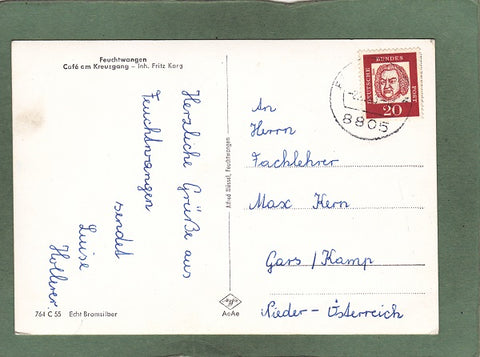 Feuchtwangen
Café am Kreuzgang – Inh. Fritz Karg
Herzliche Grüße aus
Feuchtwangen
sendet
Luise
Hollerer
764 C 55 Echt Bromsilber
Feuchtwangen
Agfa
AeAe
DEUTSCHE BUNDESPOST
20
8805
An
Herrn
Fachlehrer
Max Kern
Gars / Kamp
Nieder-Österreich